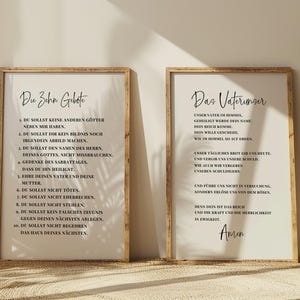 Die Zehn Gebote
1. DU SOLLST KEINE ANDEREN GÖTTER
NEBEN MIR HABEN.
2. DU SOLLST DIR KEIN BILDNIS NOCH
IRGENDEIN ABBILD MACHEN.
3. DU SOLLST DEN NAMEN DES HERRN,
DEINES GOTTES, NICHT MISSBRAUCHEN.
4. GEDENKE DES SABBATTAGES,
DASS DU IHN HEILIGST.
5. EHRE DEINEN VATER UND DEINE
MUTTER.
6. DU SOLLST NICHT TÖTEN.
7. DU SOLLST NICHT EHEBRECHEN.
8. DU SOLLST NICHT STEHLEN.
9. DU SOLLST KEIN FALSCHES ZEUGNIS
GEGEN DEINEN NÄCHSTEN ABLEGEN.
10. DU SOLLST NICHT BEGEHREN
DAS HAUS DEINES NÄCHSTEN.
Das Vaterunser
UNSER VATER IM HIMMEL,
GEHEILIGT WERDE DEIN NAME
DEIN REICH KOMME.
DEIN WILLE GESCHEHE,
WIE IM HIMMEL SO AUF ERDEN.
UNSER TÄGLICHES BROT GIB UNS HEUTE.
UND VERGIB UNS UNSERE SCHULD,
WIE AUCH WIR VERGEBEN
UNSEREN SCHULDIGERN.
UND FÜHRE UNS NICHT IN VERSUCHUNG,
SONDERN ERLÖSE UNS VON DEM BÖSEN.
DENN DEIN IST DAS REICH
UND DIE KRAFT UND DIE HERRLICHKEIT
IN EWIGKEIT.
Amen